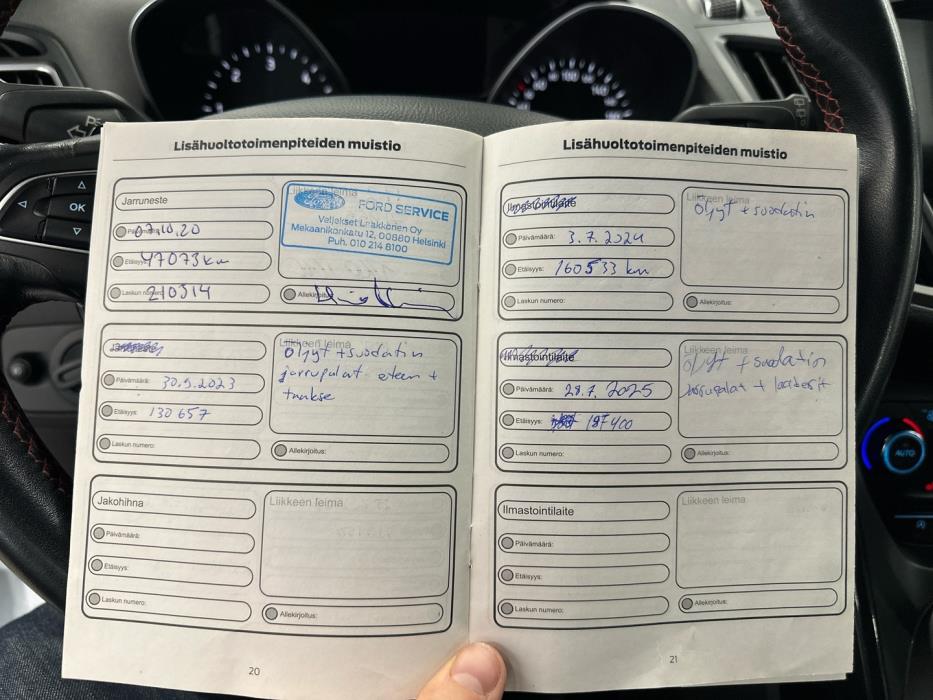 Lisähuoltotoimenpiteiden muistio
Jarruneste
Liikkeen leima
Ford
FORD SERVICE
Veljekset Laakkonen Oy
Mekaanikonkatu 12, 00880 Helsinki
Puh. 010 214 8100
Päivämäärä: 07.10.20
Etäisyys: 47073 km
Laskun numero: 210314
Allekirjoitus:
Liikkeen leima
öljyt + suodatin
jarrupalat eteen +
taakse
Päivämäärä: 30.9.2023
Etäisyys: 130 657
Laskun numero:
Allekirjoitus:
Jakohihna
Liikkeen leima
Päivämäärä:
Etäisyys:
Laskun numero:
Allekirjoitus:
20
Lisähuoltotoimenpiteiden muistio
Ilmastointilaite
Liikkeen leima
öljyt + suodatin
Päivämäärä: 3.7.2024
Etäisyys: 160533 km
Laskun numero:
Allekirjoitus:
Ilmastointilaite
Liikkeen leima
öljyt + suodatin
jarrupalat +
Päivämäärä: 28.7.2025
Etäisyys: 187400
Laskun numero:
Allekirjoitus:
Ilmastointilaite
Liikkeen leima
Päivämäärä:
Etäisyys:
Laskun numero:
Allekirjoitus:
21
OK
AUTO
P
2
3
4
100